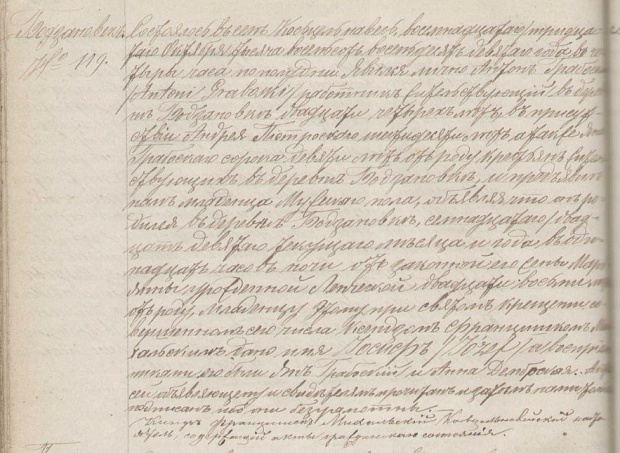 Бодзановекъ
№ 119.
Состоялось въ селѣ восемнадцатаго /тридца-
таго/ Октября тысяча восемьсотъ восемдесятъ девятаго года, въ че-
тыре часа по полудни. Явился лично Антонъ Грабскій
/Antoni Grabski/ работникъ жительствующій въ дерев-
нѣ Бодзановкѣ двадцати четырехъ лѣтъ, въ присут-
ствіи Андрея Петровскаго лѣтъ а также
Грабскаго сорока девяти лѣтъ отъ роду крестьянъ житель-
ствующихъ въ деревнѣ Бодзановкѣ, и предъявилъ
намъ младенца мужескаго пола, объявляя что онъ ро-
дился въ деревнѣ Бодзановкѣ, семнадцатаго /двад-
цать девятаго/ текущаго мѣсяца и года въ оди-
надцать часовъ ночи отъ законной его жены Марі-
янны урожденной двадцати восьми лѣтъ
отъ роду. Младенцу этому при святомъ крещеніи со-
вершенномъ сего числа Ксендзомъ Францишкомъ Ми-
хальскимъ дано имя Іосифъ /Józef/ а воспріем-
никами его были Янъ Грабскій и Анна Дембская. Актъ
сей объявляющему и свидѣтелямъ прочитанъ и затѣмъ нами
подписанъ, ибо они безграмотны.
Ксендзъ Францишекъ Михальскій
содержащій акты гражданскаго состоянія.